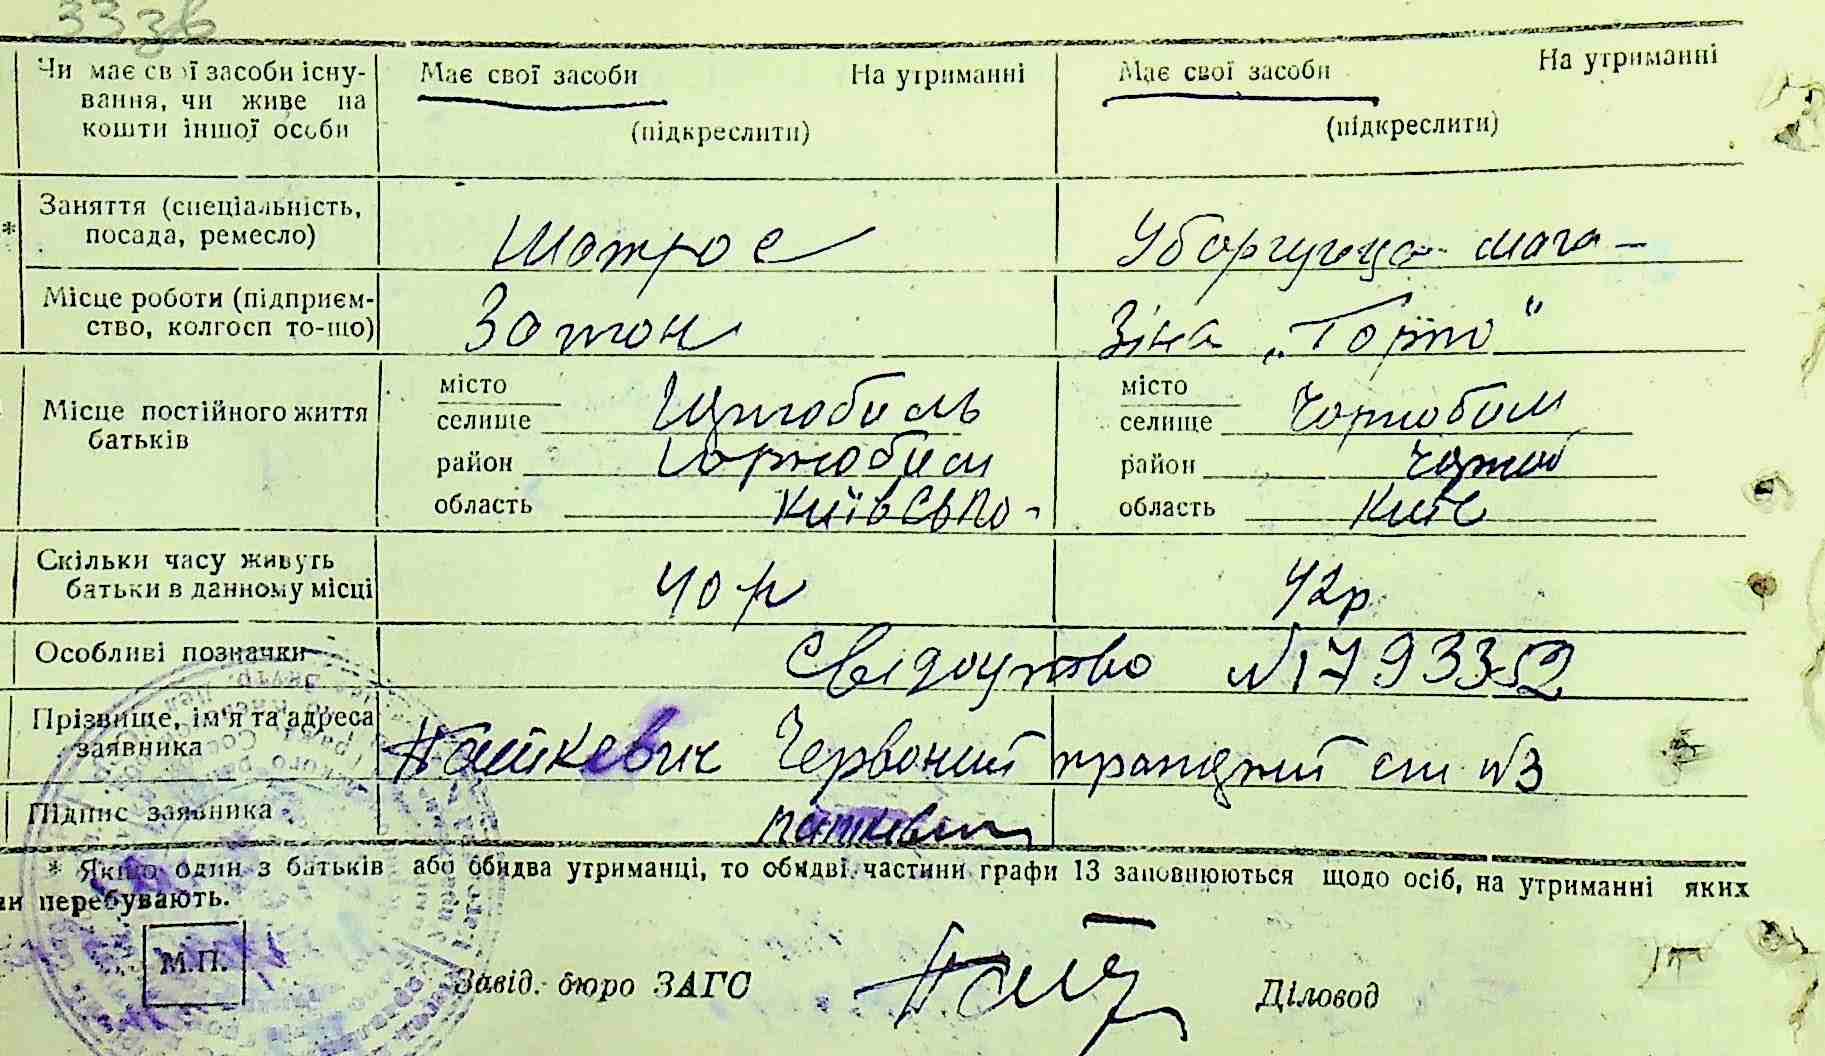 33 зв
Чи має свої засоби існу- Має свої засоби На утриманні Має свої засоби На утриманні
вання, чи живе на
кошти іншої особи (підкреслити) (підкреслити)
Заняття (спеціальність,
* посада, ремесло) Матрос Уборщиця мага-
Місце роботи (підприєм-
ство, колгосп то-що) Затон зіна „Торт"
місто місто
Місце постійного життя селище Чорнобиль селище Чорнобил
батьків район Чорнобил район Чорноб
область Київсько- область Київ
Скільки часу живуть
батьки в данному місці 40 р 42 р
Особливі позначки Свідоцтво N 179335
Прізвище, ім'я та адреса
заявника Пашкевич Червоний ст N3
Підпис заявника Пашкевич
* Якщо один з батьків або обидва утриманці, то обидві частини графи 13 заповнюються щодо осіб, на утриманні яких
ни перебувають.
М.П. Завід. бюро ЗАГС Діловод